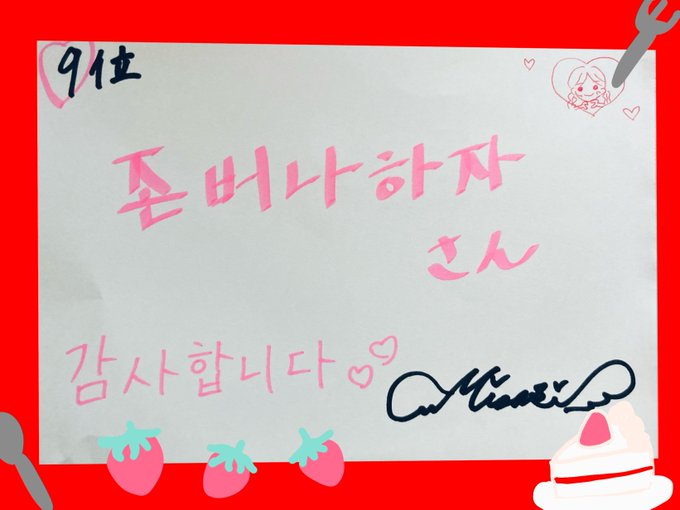 9位
존버나하자
さん
감사합니다